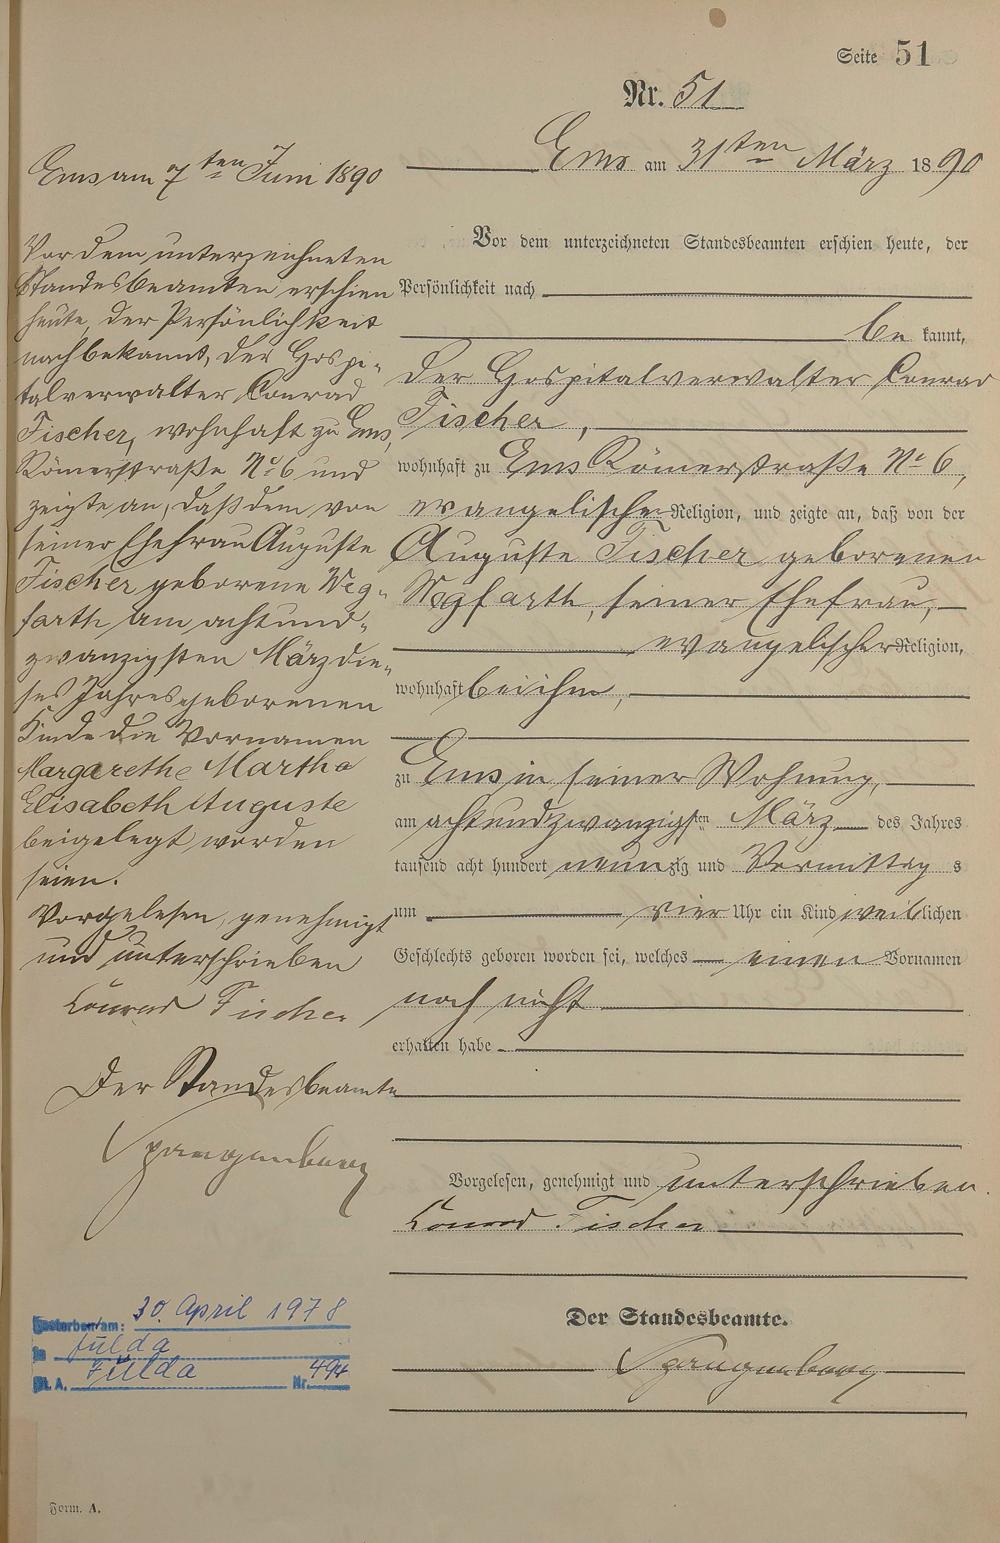 Seite 51
Nr. 51
Ems am 31ten März 1890
Vor dem unterzeichneten Standesbeamten erschien heute, der
Persönlichkeit nach
be kannt,
der Hospitalverwalter Conrad
Fischer,
wohnhaft zu Ems Römerstraße No 6,
evangelischer Religion, und zeigte an, daß von der
Auguste Fischer geborenen
Wegfarth, seiner Ehefrau,
evangelischer Religion,
wohnhaft bei ihm,
zu Ems in seiner Wohnung,
am achtundzwanzigsten März des Jahres
tausend acht hundert neunzig und Vormittags
um vier Uhr ein Kind weiblichen
Geschlechts geboren worden sei, welches einen Vornamen
noch nicht
erhalten habe
Vorgelesen, genehmigt und unterschrieben.
Conrad Fischer
Der Standesbeamte.
Spangenberg
Ems am 7ten Juni 1890
Vor dem unterzeichneten
Standesbeamten erschien
heute, der Persönlichkeit
nach bekannt, der Hospi-
talverwalter Conrad
Fischer, wohnhaft zu Ems,
Römerstraße No 6 und
zeigte an, daß dem von
seiner Ehefrau Auguste
Fischer geborene Weg-
farth am achtund-
zwanzigsten März die-
ses Jahres geborenen
Kinde die Vornamen
Margarethe Martha
Elisabeth Auguste
beigelegt worden
seien.
Vorgelesen, genehmigt
und unterschrieben
Conrad Fischer
Der Standesbeamte
Spangenberg
Gestorben am: 30. April 1978
in Fulda
St. A. Fulda Nr. 494
Form. A.